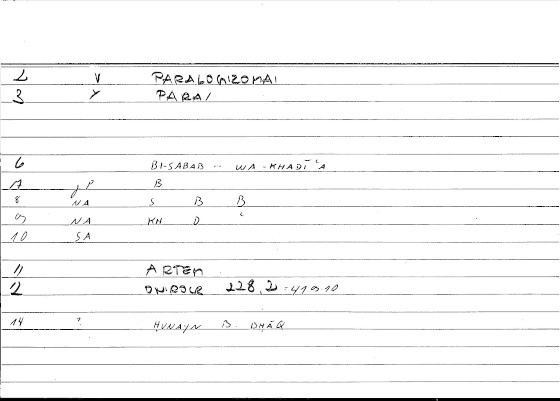 2 V PARALOGIZOMAI
3 Y PARA/
6 BI-SABAB -- WA-KHADĪʿA
7 gP B
8 NA S B B
9 NA KH D ʿ
10 SA
11 ARTEM
12 ONIROCR 228,2 = 41910
14 ? ḤUNAYN B. ISḤĀQ